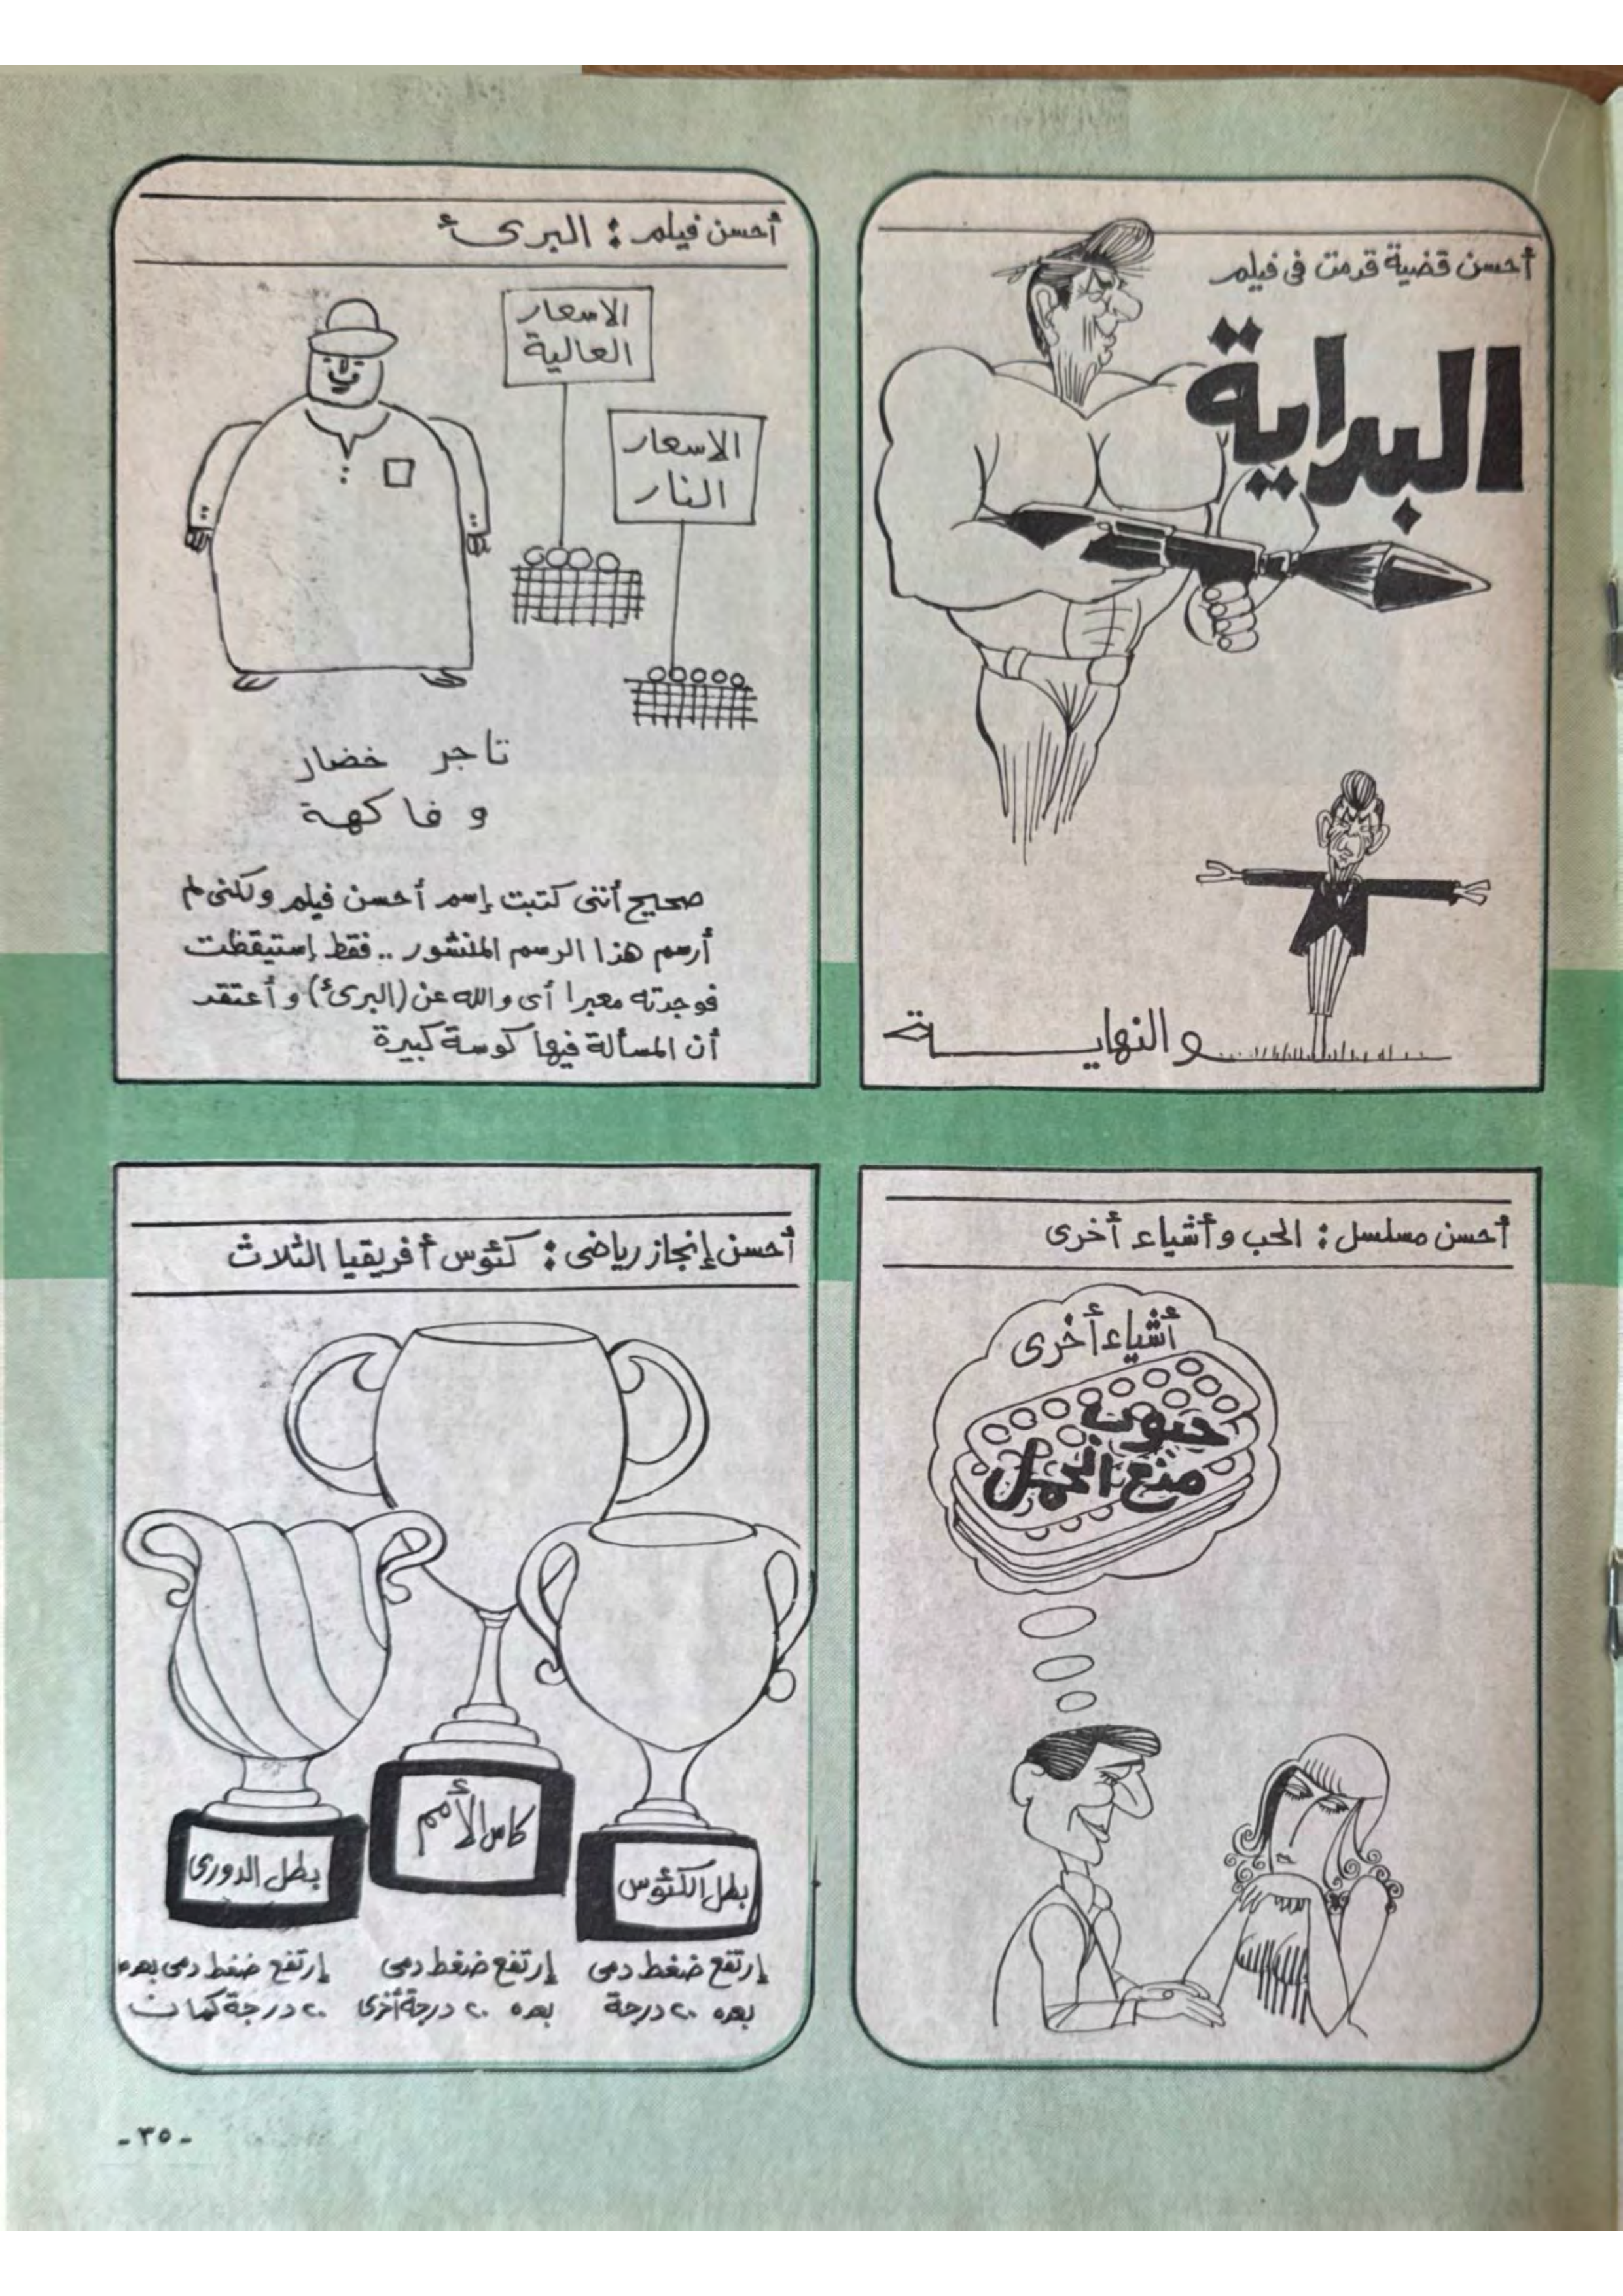 أحسن قضية قدمت فى فيلم
البداية
والنهايـــــة
أحسن فيلم : البرئ
الاسعار
العالية
الاسعار
النار
تاجر خضار
وفاكهة
صحيح أننى كتبت إسم أحسن فيلم ولكنى لم
أرسم هذا الرسم المنشور .. فقط إستيقظت
فوجدته معبرا أى والله عن (البرئ) وأعتقد
أن المسألة فيها كوسة كبيرة
أحسن مسلسل : الحب وأشياء أخرى
أشياء أخرى
حبوب
منع الحمل
أحسن إنجاز رياضى : كئوس أفريقيا الثلاث
بطل الكئوس
كاس الأمم
بطل الدورى
إرتفع ضغط دمى
بعده ٢٠ درجة
إرتفع ضغط دمى
بعده ٢٠ درجة أخرى
إرتفع ضغط دمى بعده
٢٠ درجة كمان
- ٣٥ -